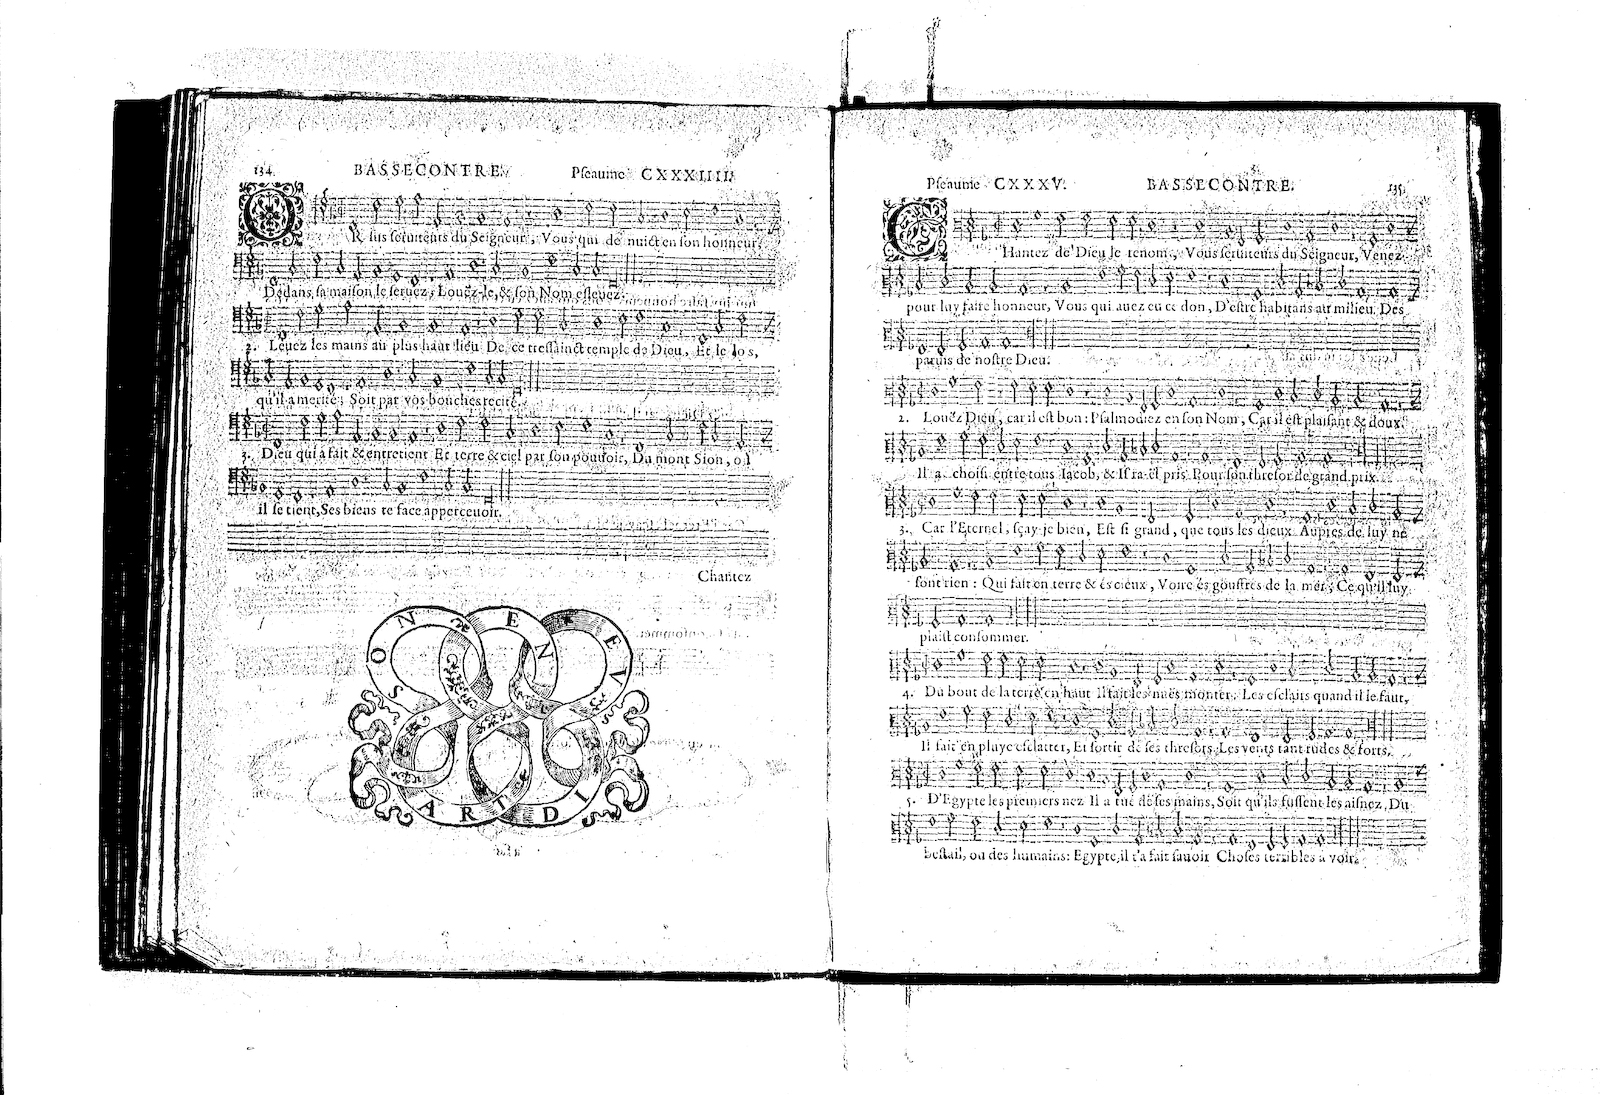 134. BASSECONTRE. Pseaume CXXXIIII.
OR sus seruiteurs du Seigneur, Vous qui de nuict en son honneur,
Dedans sa maison le seruez, Louëz-le, & son Nom esleuez.
2. Leuez les mains au plus haut lieu De ce tressainct temple de Dieu, Et le los,
qu'il a merité; Soit par vos bouches recité.
3. Dieu qui a fait & entretient Et terre & ciel par son pouuoir, Du mont Sion, où
il se tient, Ses biens te face apperceuoir.
Chantez
SON EN EV
ARDI
Pseaume CXXXV. BASSECONTRE. 135.
CHantez de Dieu le renom, Vous seruiteurs du Seigneur, Venez
pour luy faire honneur, Vous qui auez eu ce don, D'estre habitans au milieu Des
paruis de nostre Dieu.
2. Louëz Dieu, car il est bon: Psalmodiez en son Nom, Car il est plaisant & doux.
Il a choisi entre tous Iacob, & Israël pris Pour son thresor de grand prix.
3. Car l'Eternel, sçay-je bien, Est si grand, que tous les dieux Aupres de luy ne
sont rien: Qui fait en terre & és cieux, Voire és gouffres de la mer, Ce qu'il luy
plaist consommer.
4. Du bout de la terre en haut Il fait les nuës monter: Les esclairs quand il le faut,
Il fait en pluye esclatter, Et sortir de ses thresors Les vents tant rudes & forts.
5. D'Egypte les premiers nez Il a tué de ses mains, Soit qu'ils fussent les aisnez, Du
bestail, ou des humains: Egypte, il t'a fait sauoir Choses terribles à voir.